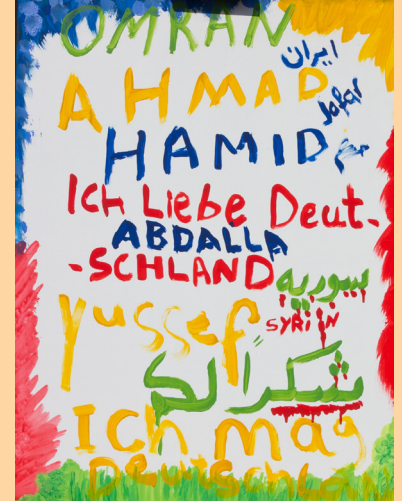 OMRAN
ایران
AHMAD
Jafar
HAMID
ICH Liebe Deut-
ABDALLA
-SCHLAND
سوريه
yussef
SYRiN
شكراً لك
Ich mag
Deutschlan